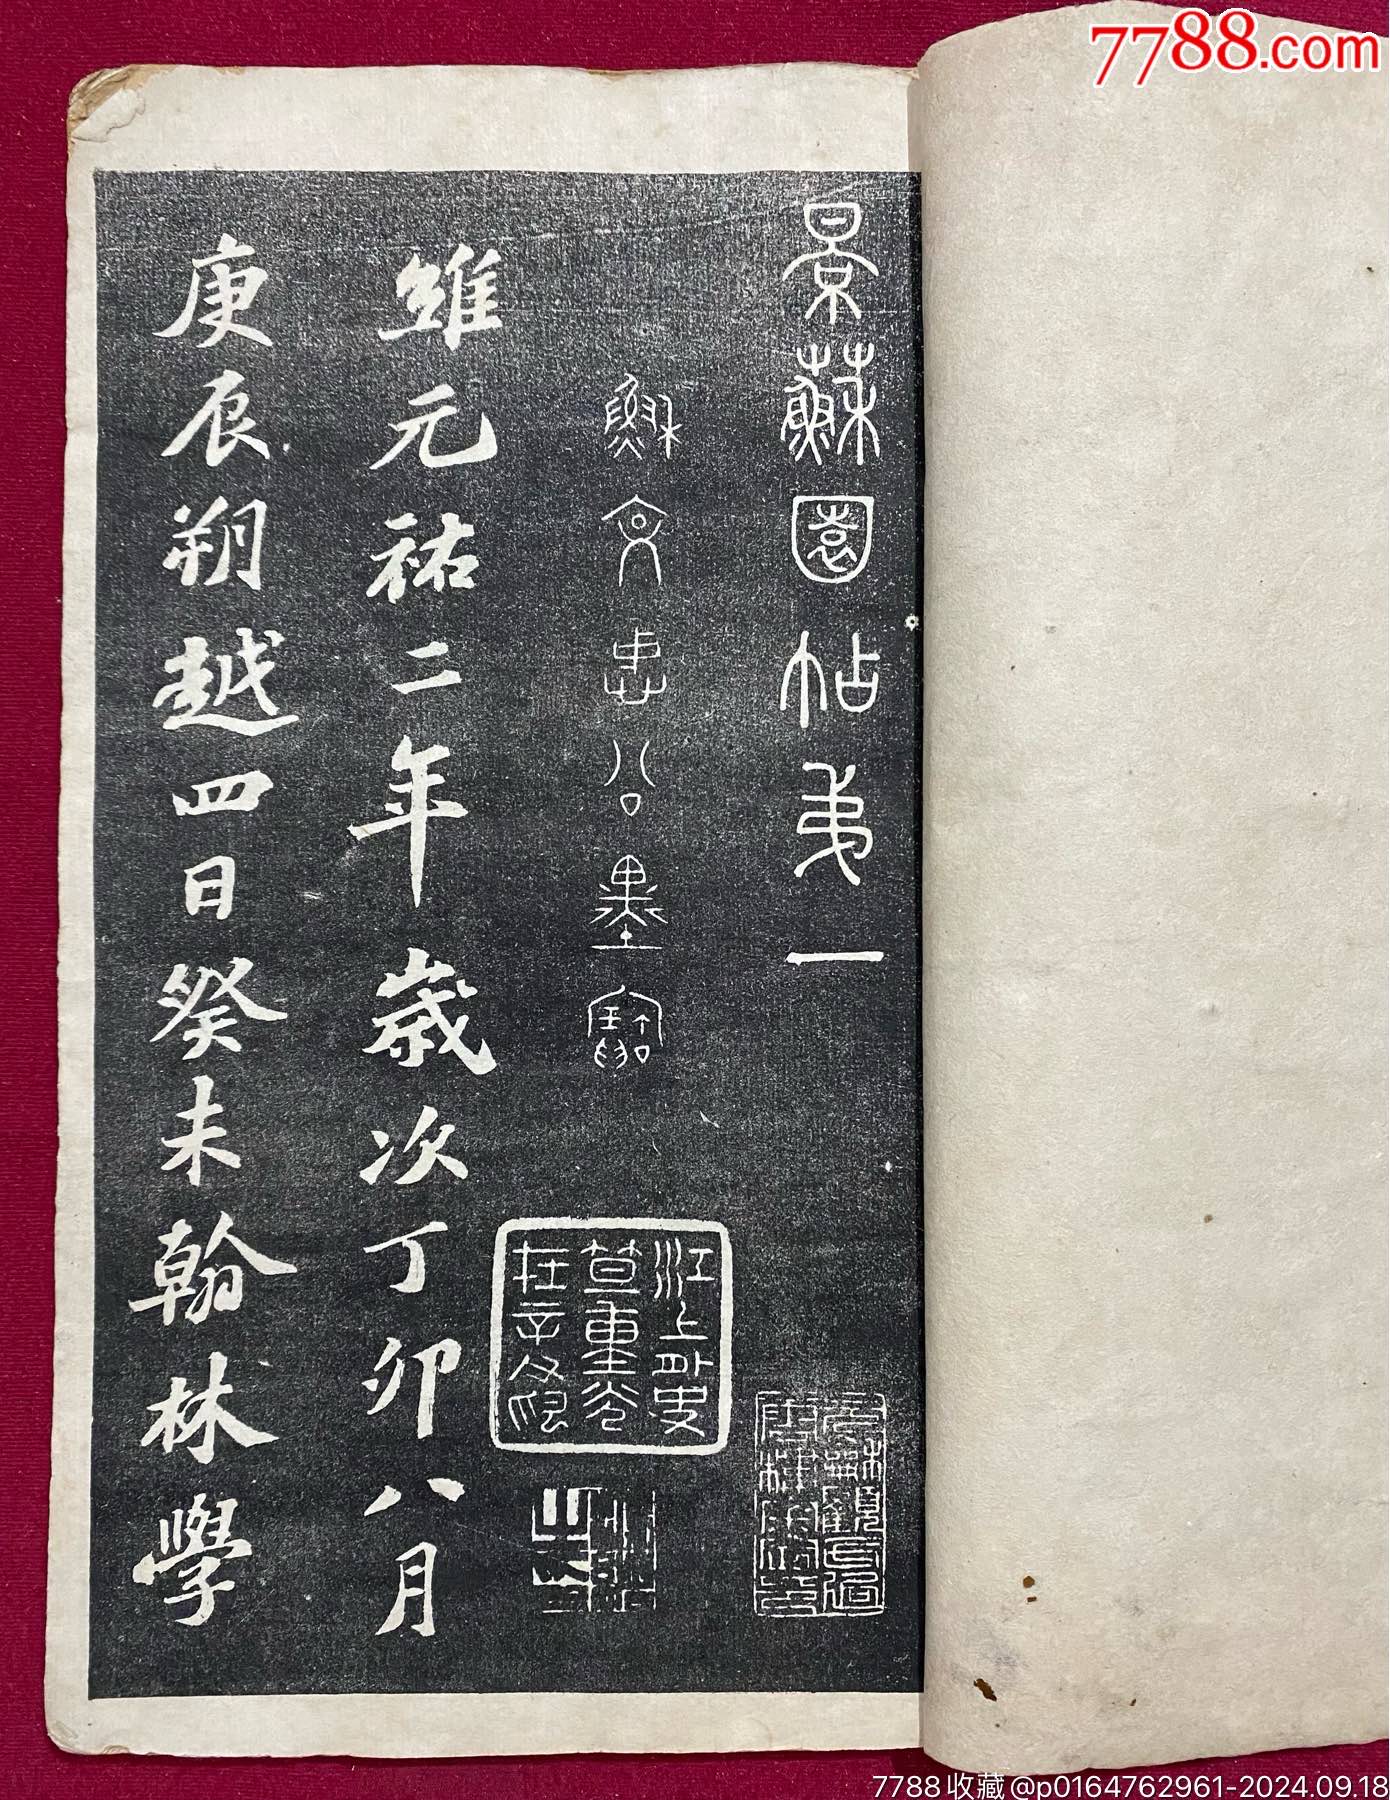 7788.com
景蘇園帖弟一
蘇文忠公墨寶
江上外史
笪重光
在辛父印
維元祐二年歲次丁卯八月
庚辰朔越四日癸未翰林學
7788收藏@p0164762961-2024.09.18